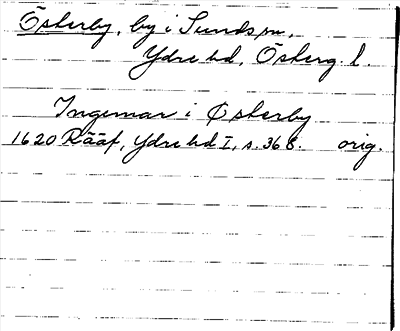 Österby, by i Sunds sn,
Ydre hd, Österg. l.
Ingemar i Österby
1620 Rääf, Ydre hd I, s. 368. orig.